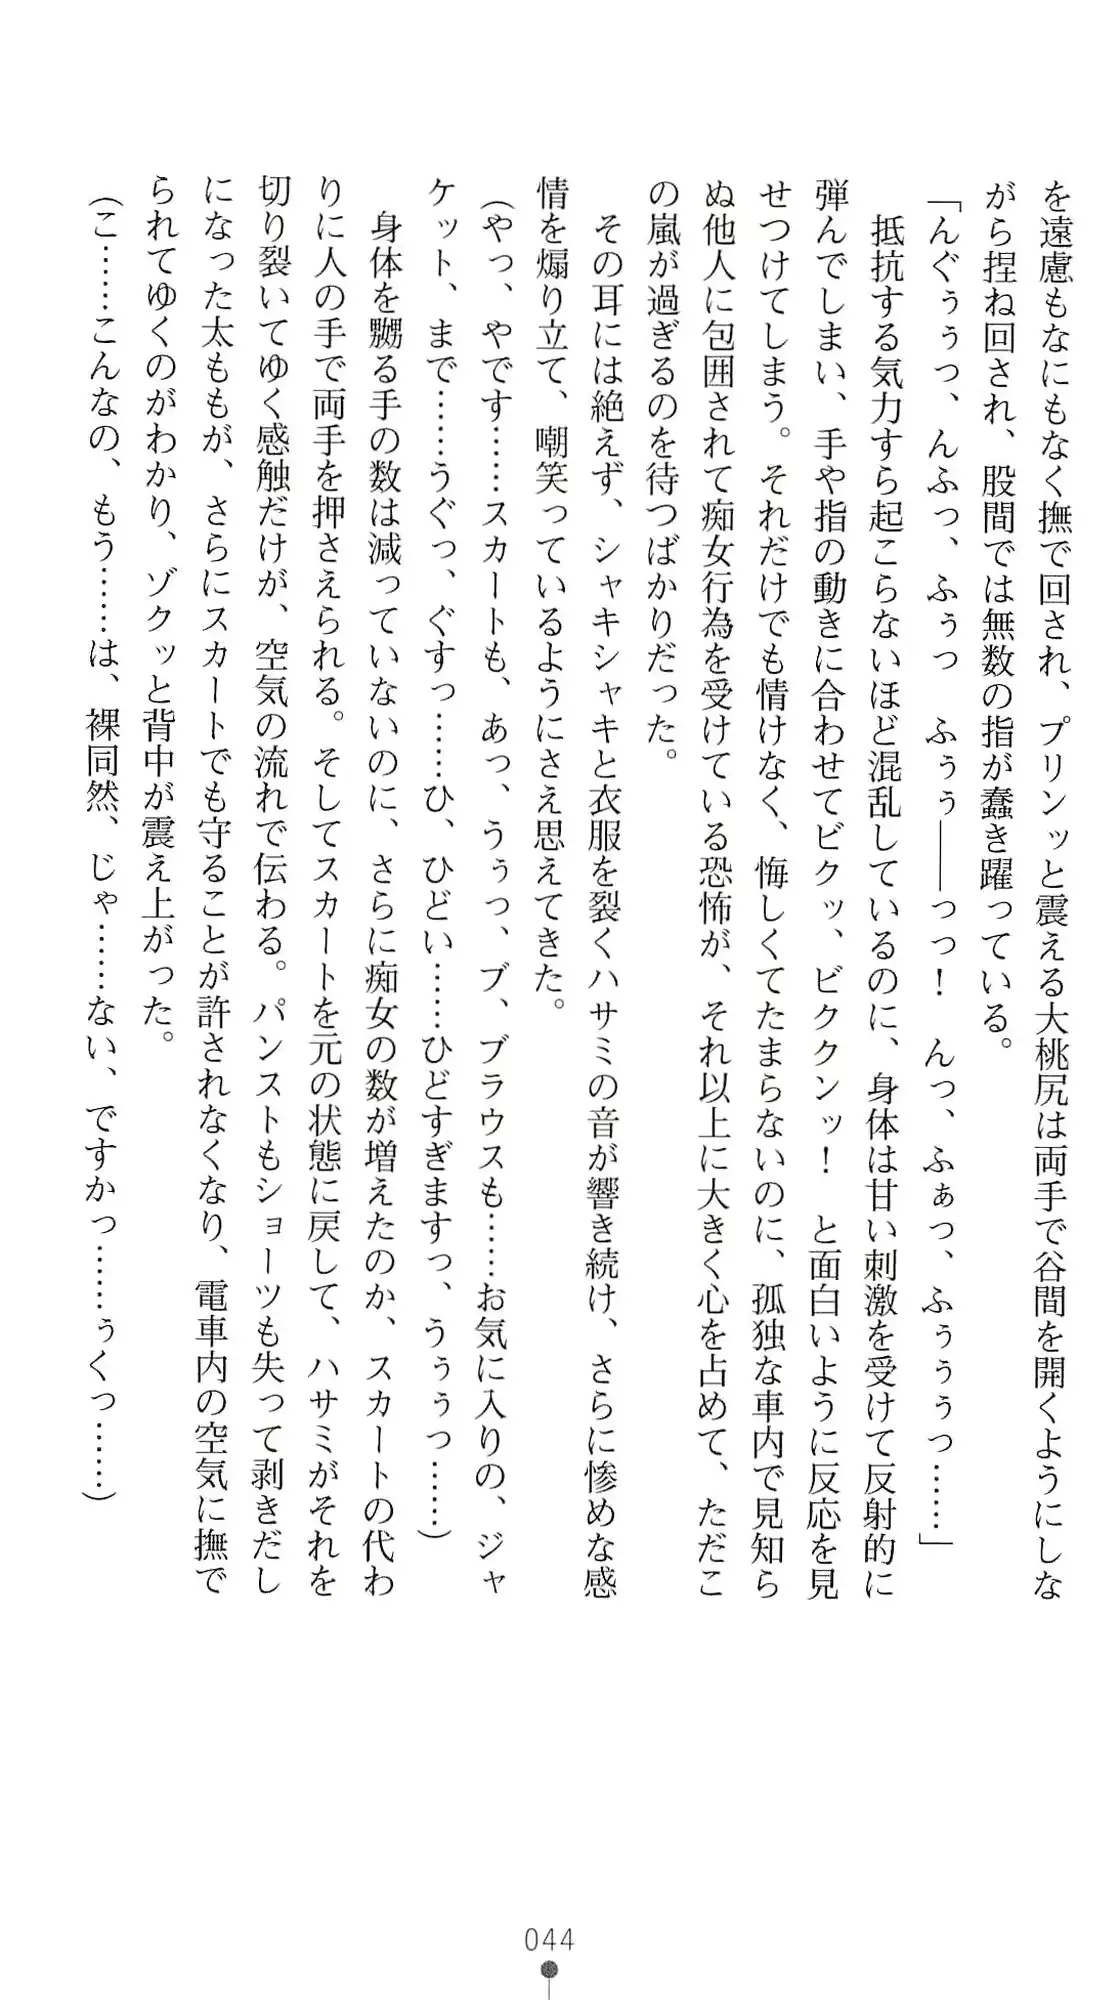 を遠慮もなにもなく撫で回され、プリンッと震える大桃尻は両手で谷間を開くようにしな
がら捏ね回され、股間では無数の指が蠢き躍っている。
「んぐぅぅっ、んふっ、ふぅっ　ふぅぅ――っっ！　んっ、ふぁっ、ふぅぅぅっ……」
　抵抗する気力すら起こらないほど混乱しているのに、身体は甘い刺激を受けて反射的に
弾んでしまい、手や指の動きに合わせてビクッ、ビククンッ！　と面白いように反応を見
せつけてしまう。それだけでも情けなく、悔しくてたまらないのに、孤独な車内で見知ら
ぬ他人に包囲されて痴女行為を受けている恐怖が、それ以上に大きく心を占めて、ただこ
の嵐が過ぎるのを待つばかりだった。
　その耳には絶えず、シャキシャキと衣服を裂くハサミの音が響き続け、さらに惨めな感
情を煽り立て、嘲笑っているようにさえ思えてきた。
（やっ、やです……スカートも、あっ、うぅっ、ブ、ブラウスも……お気に入りの、ジャ
ケット、まで……うぐっ、ぐすっ……ひ、ひどい……ひどすぎますっ、うぅぅっ……）
　身体を嬲る手の数は減っていないのに、さらに痴女の数が増えたのか、スカートの代わ
りに人の手で両手を押さえられる。そしてスカートを元の状態に戻して、ハサミがそれを
切り裂いてゆく感触だけが、空気の流れで伝わる。パンストもショーツも失って剥きだし
になった太ももが、さらにスカートでも守ることが許されなくなり、電車内の空気に撫で
られてゆくのがわかり、ゾクッと背中が震え上がった。
（こ……こんなの、もう……は、裸同然、じゃ……ない、ですかっ……ぅくっ……）
044